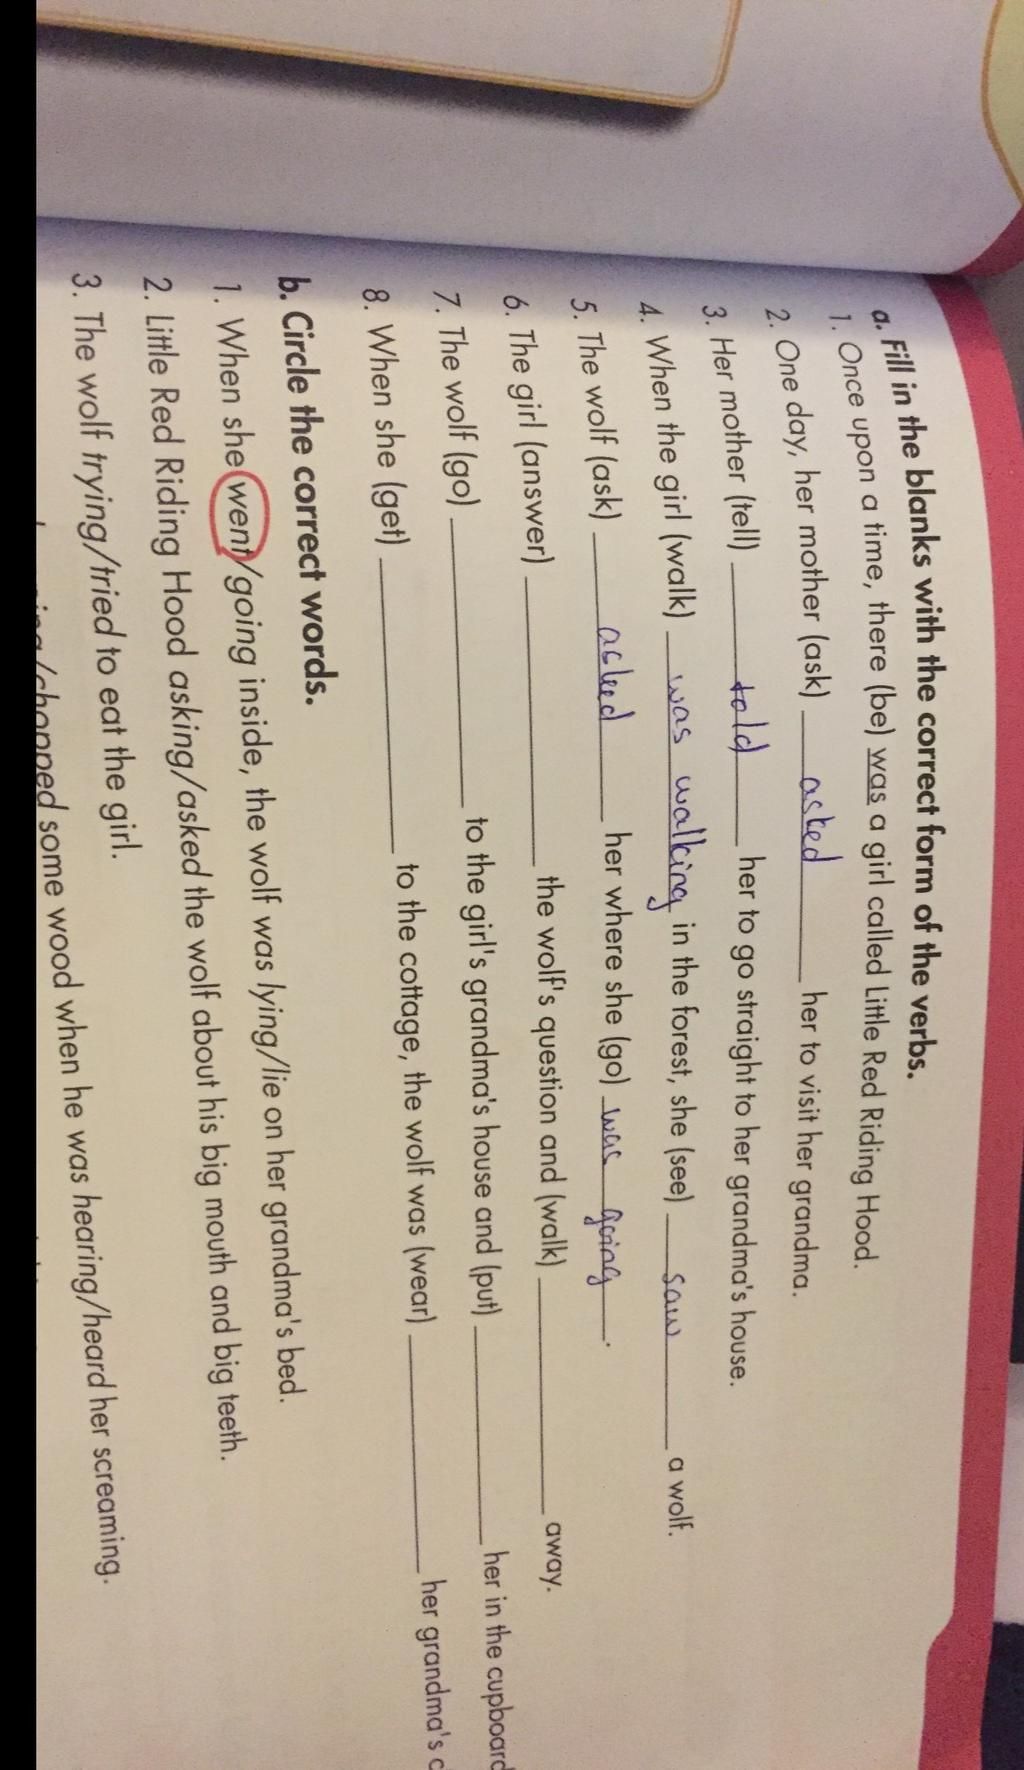 a. Fill in the blanks with the correct form of the verbs.
1. Once upon a time, there (be) was a girl called Little Red Riding Hood.
2. One day, her mother (ask) asked her to visit her grandma.
3. Her mother (tell) told her to go straight to her grandma's house.
4. When the girl (walk) was walking in the forest, she (see) saw a wolf.
5. The wolf (ask) asked her where she (go) was going.
6. The girl (answer) ____ the wolf's question and (walk) ____ away.
7. The wolf (go) ____ to the girl's grandma's house and (put) ____ her in the cupboard
8. When she (get) ____ to the cottage, the wolf was (wear) ____ her grandma's
b. Circle the correct words.
1. When she went/going inside, the wolf was lying/lie on her grandma's bed.
2. Little Red Riding Hood asking/asked the wolf about his big mouth and big teeth.
3. The wolf trying/tried to eat the girl.
/chopped some wood when he was hearing/heard her screaming.